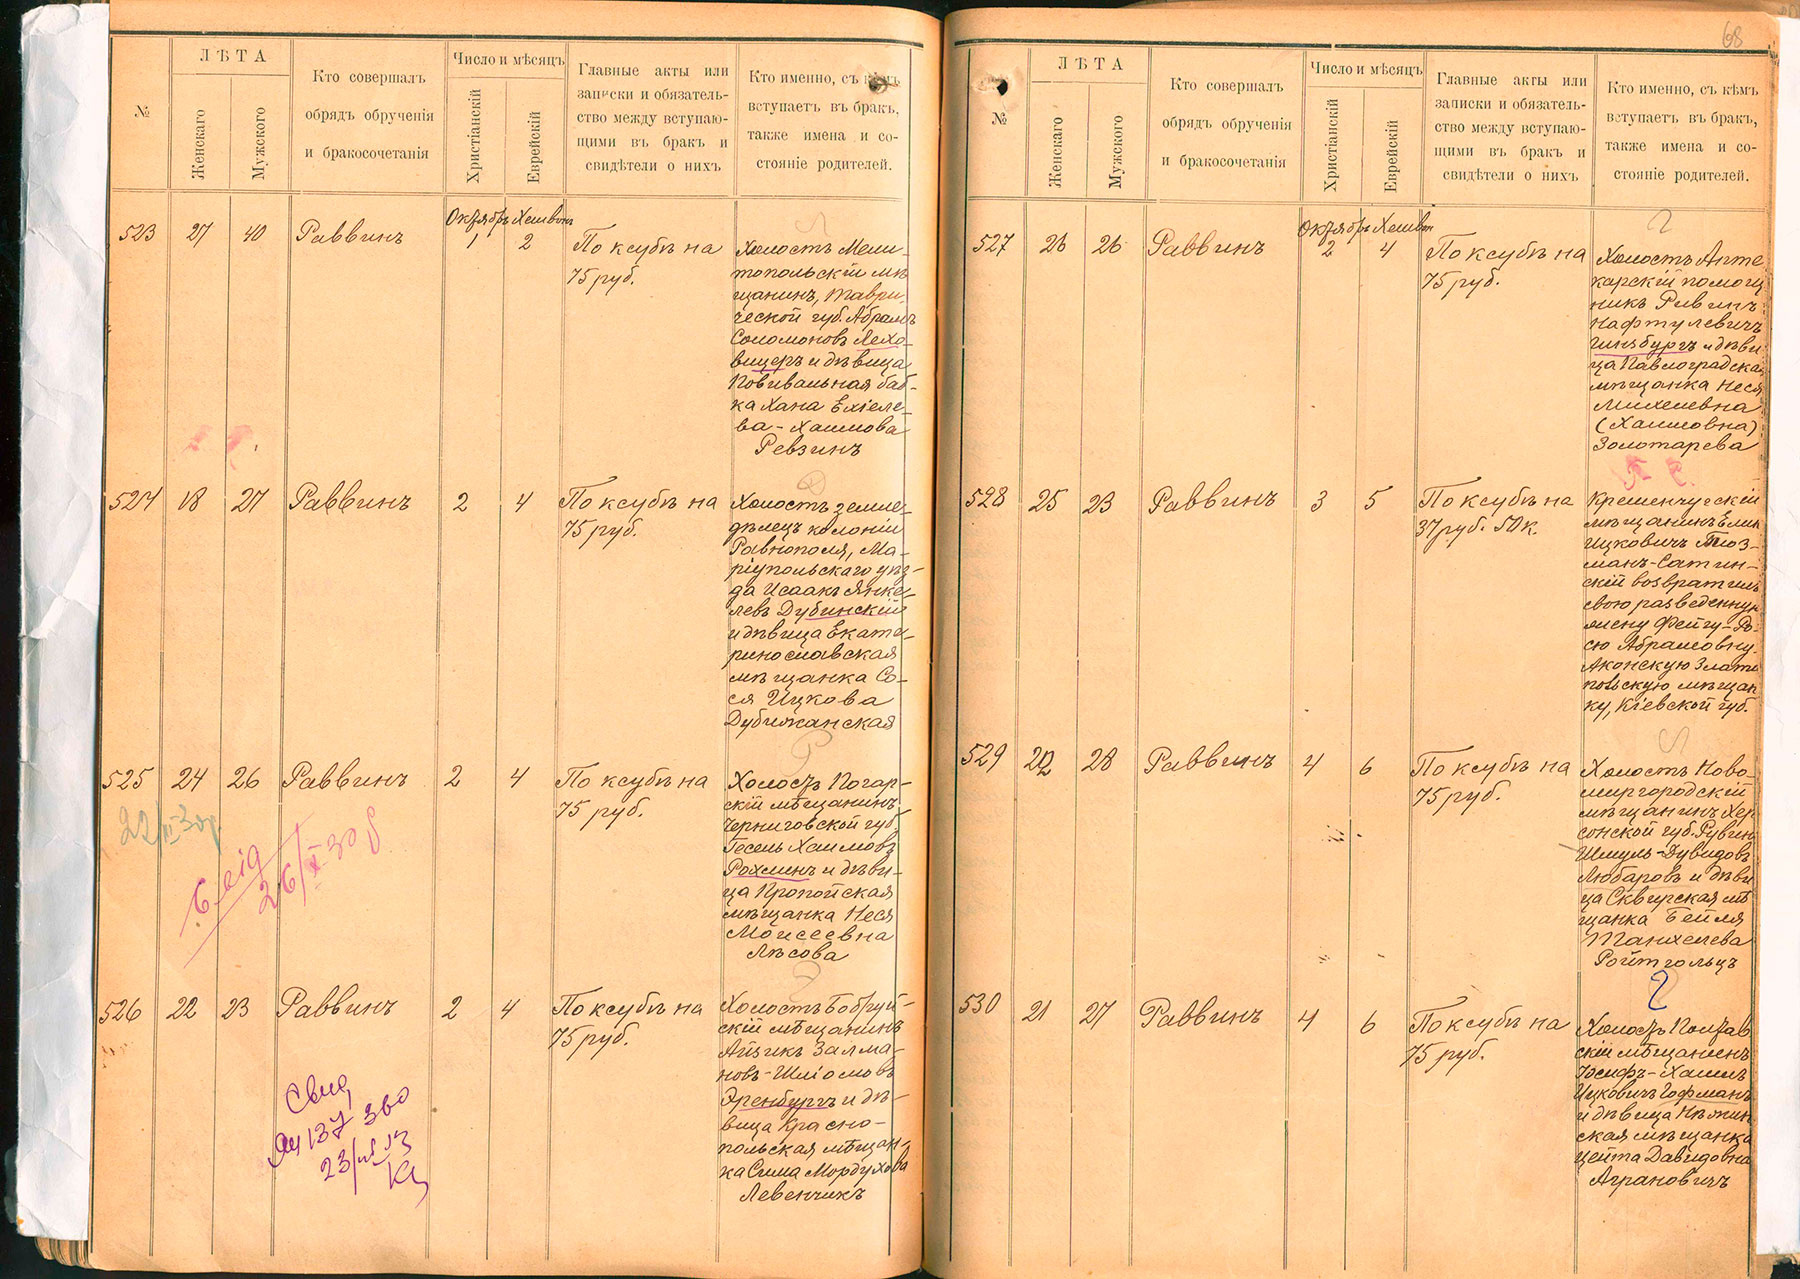 №
ЛѢТА
Женскаго
Мужского
Кто совершалъ
обрядъ обрученія
и бракосочетанія
Число и мѣсяцъ
Христіанскій
Еврейскій
Главные акты или
записки и обязатель-
ство между вступаю-
щими въ бракъ и
свидѣтели о нихъ
Кто именно, съ кѣмъ
вступаетъ въ бракъ,
также имена и со-
стояніе родителей.
523 27 40 Раввинъ
Октябрь Хешвонъ
1 2
По ксубѣ на
75 руб.
Холостъ Мели-
топольскій мѣ-
щанинъ, Таври-
ческой губ. Абрамъ
Соломоновъ Лехо-
вицеръ и дѣвица
Повивальная баб-
ка Хана Ехіеле-
ва-Хаимова
Ревзинъ
524 18 27 Раввинъ 2 4
По ксубѣ на
75 руб.
Холостъ земле-
дѣлецъ колоніи
Равнополя, Ма-
ріупольскаго уѣз-
да Исаакъ Янке-
левъ Дубинскій
и дѣвица Екате-
ринославская
мѣщанка Со-
ся Ицкова
Дубижанская
525 24 26 Раввинъ 2 4
По ксубѣ на
75 руб.
Холостъ Погар-
скій мѣщанинъ
Черниговской губ.
Гесель Хаимовъ
Рохлинъ и дѣви-
ца Пропойская
мѣщанка Неся
Моисеевна
Лѣсова
526 22 23 Раввинъ 2 4
По ксубѣ на
75 руб.
Холостъ Бобруй-
скій мѣщанинъ
Айзикъ Залма-
новъ-Шліомовъ
Эренбургъ и дѣ-
вица Красно-
польская мѣщан-
ка Сима Мордухова
Левенчикъ
68
№
ЛѢТА
Женскаго
Мужского
Кто совершалъ
обрядъ обрученія
и бракосочетанія
Число и мѣсяцъ
Христіанскій
Еврейскій
Главные акты или
записки и обязатель-
ство между вступаю-
щими въ бракъ и
свидѣтели о нихъ
Кто именно, съ кѣмъ
вступаетъ въ бракъ,
также имена и со-
стояніе родителей.
527 26 26 Раввинъ
Октябрь Хешвон
2 4
По ксубѣ на
75 руб.
Холостъ Апте
карскій помощ
никъ Рувинъ
Нафтулевичъ
Гинзбургъ и дѣви
ца Павлоградская
мѣщанка Неся
Михелевна
(Хаимовна)
Золотарева
528 25 23 Раввинъ 3 5
По ксубѣ на
37 руб. 50 к.
Кременчугскій
мѣщанинъ
Ицковичъ
ман-Сатин-
скій возвратилъ
свою разведенную
жену Фейгу-Ро-
сю Абрамовну
Аконскую Злато
польскую мѣщан
ку, Кіевской губ.
529 22 28 Раввинъ 4 6
По ксубѣ на
75 руб.
Холостъ Ново-
миргородскій
мѣщанинъ Хер
сонской губ. Рувинъ
Шмуль-Дувидовъ
Любаровъ и дѣви
ца Сквирская мѣ
щанка Бейля
Танхелева
Ройтгольцъ
530 21 27 Раввинъ 4 6
По ксубѣ на
75 руб.
Холостъ Полтав
скій мѣщанинъ
Іосифъ-Хаимъ
Ицковичъ Гофманъ
и дѣвица Нѣжин
ская мѣщанка
Цейта Давидовна
Аграновичъ